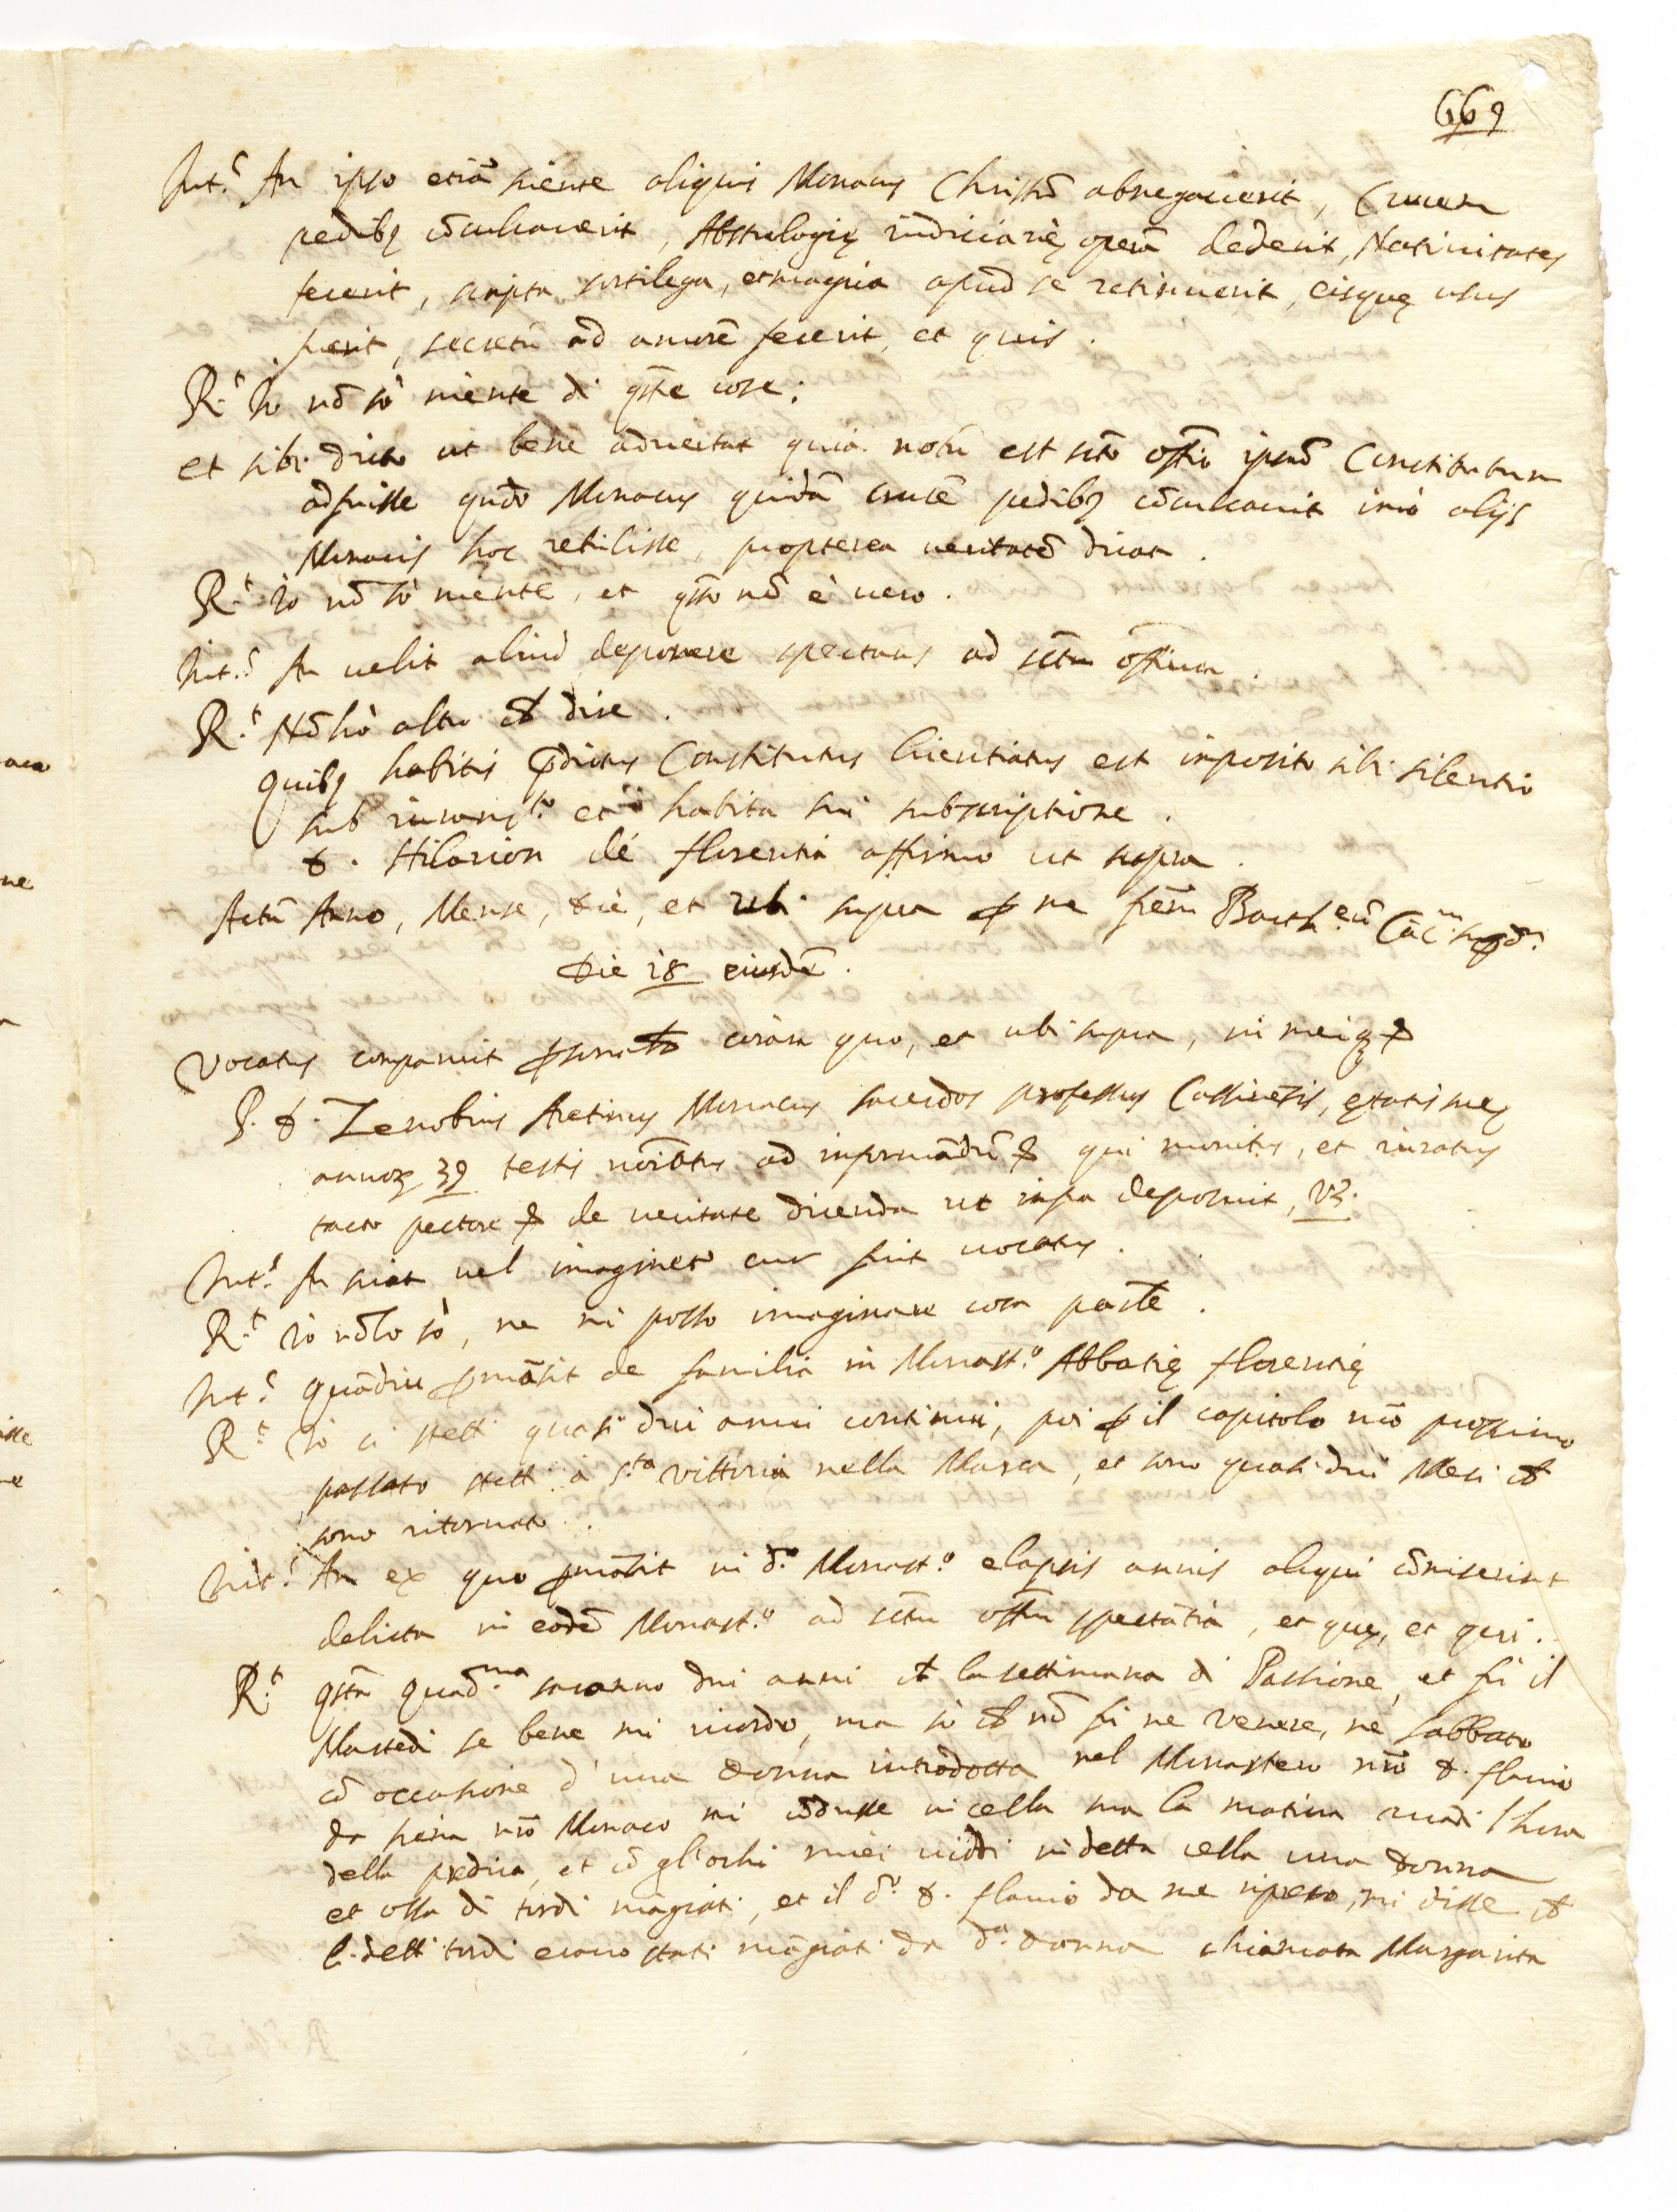 669
Int.s An ipso etiã sciente aliquis Monacus Christũ abnegauerit, Crucem
pedibq cõculcauerit, Abstrologię iudiciarię operã dederit, Natiuitates
fecerit, scripta sortilega, et magica apud se retinuerit, eisque usus
fuerit, secretũ ad amorẽ fecerit, et quis.
R.t Io nõ so niente di qste cose;
et sibi dicto ut bene aduertat quia notũ est scto offio ipsũ Constitutum
adfuisse qñdo Monacus quidã crucẽ pedibq cõculcauit imò alijs
Monacis hoc retulisse, propterea ueritatẽ dicat.
R.t Io nõ sò niente, et qsto nõ è uero.
Int.s An uelit aliud deponere spectans ad sctm offium.
R.t Nõ hò altro che dire.
Quibq habitis pdictus Constitutus licentiatus est imposito sibi silentio
sub iuram.to et habita sui subscriptione.
D. Hilarion de florentia affirmo ut supra.
Actũ Anno, Mense, Die, et ubi supra p me frẽm Barth.eũ
Die 18 eiusdẽ.
Vocatus comparuit psonalr coram quo, et ubi supra, in meiq &
P. D. Zenobius Aretinus Monacus sacerdos professus Cassinẽsis, ętatis suę
annoq 39 testis noĩatus ad informãdũ & qui monitus, et iuratus
tacto pectore & de ueritate dicenda ut infra deposuit, Vz.
Int.s An sciat uel imaginet cur sint uocatus.
R.t Io nõ lo sò, ne mi posso imaginare cosa parte.
Int.s Quãdiu pmãsit de familia in Monast.o Abbatię florentię
R.t Io ci stetti quasi dui anni continui, poi p il capitolo nro prossimo
passato stetti à S.ta Vittoria nella Marca, et sono quasi dui Mesi che
sono ritornato.
Int.s An ex quo pmãsit in d.o Monast.o elapsis annis aliqui cõmiserint
delicta in eodẽ Monast.o ad sctm offm spectãtia, et quę, et qui.
R.t qsta quad.ma saranno dui anni che la settimana di Passione, et fù il
Martedi se bene mi ricordo, ma sò che nõ fù ne Venere, ne sabbato
cõ occasione d'una donna introdotta nel Monastero nro D. flauio
da siena nro Monaco mi cõdusse in cella sua la matina auãti l'hora
della predica, et cõ gl'ochi miei uiddi in detta cella una donna
et ossa di tordi mãgiati, et il d.o D. flauio da me ripreso, mi disse che
li detti tordi erano stati mãgiati da d.a donna chiamata Margarita